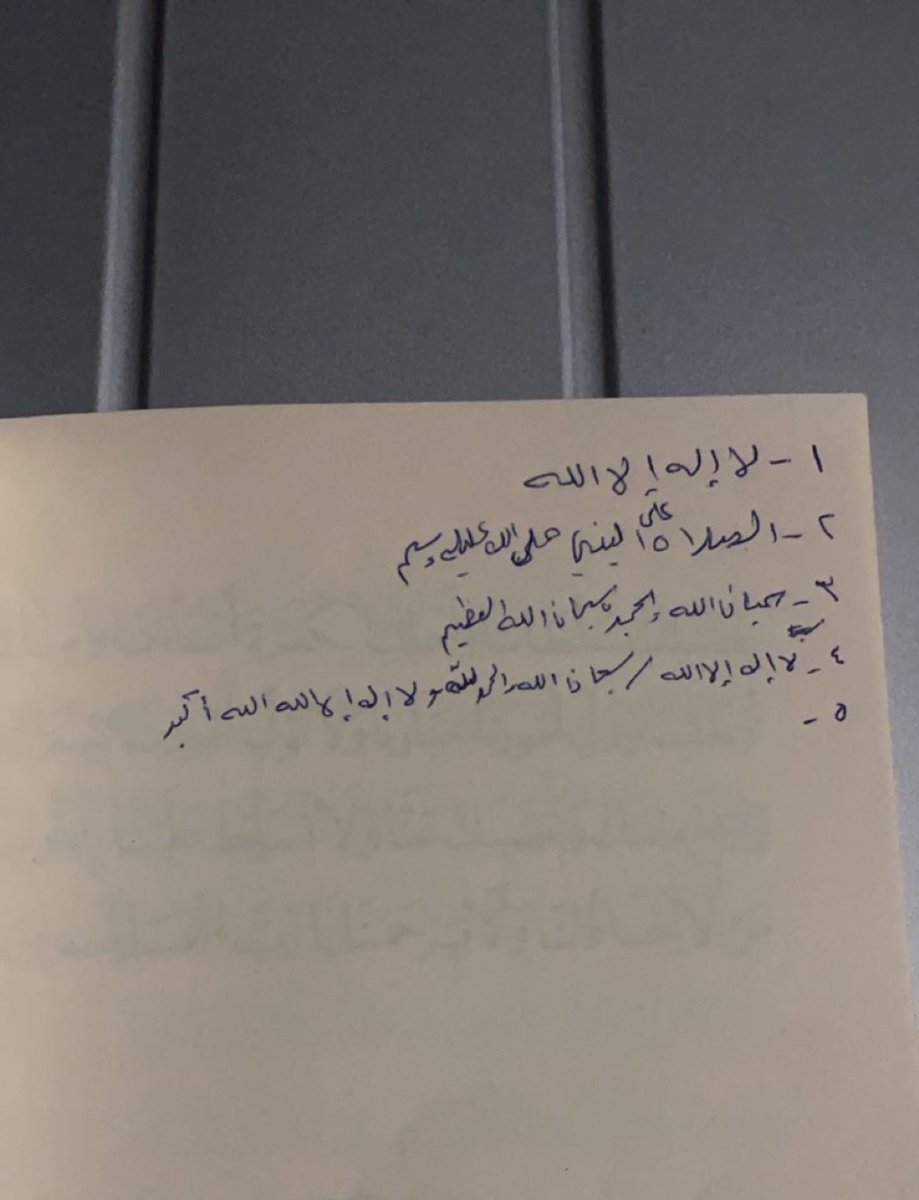 ١ - لا إله إلا الله
٢ - الصلاة على النبي صلى الله عليه وسلم
٣ - سبحان الله وبحمده سبحان الله العظيم
٤ - لا إله إلا الله / سبحان الله والحمدلله ولا إله إلا الله الله أكبر
٥ -